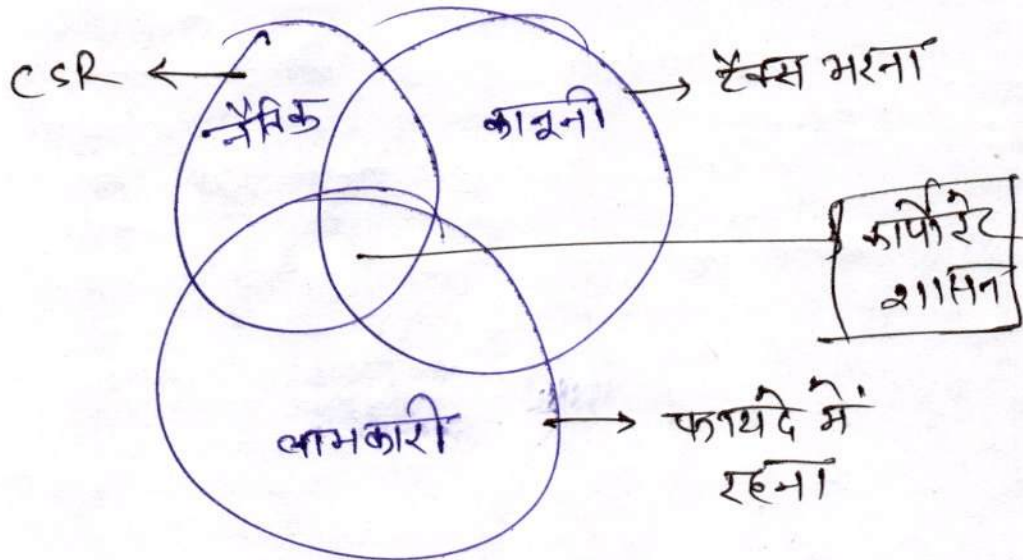 CSR
नैतिक
कानूनी
टैक्स भरना
कार्पोरेट
शासन
लाभकारी
फायदे में
रहना